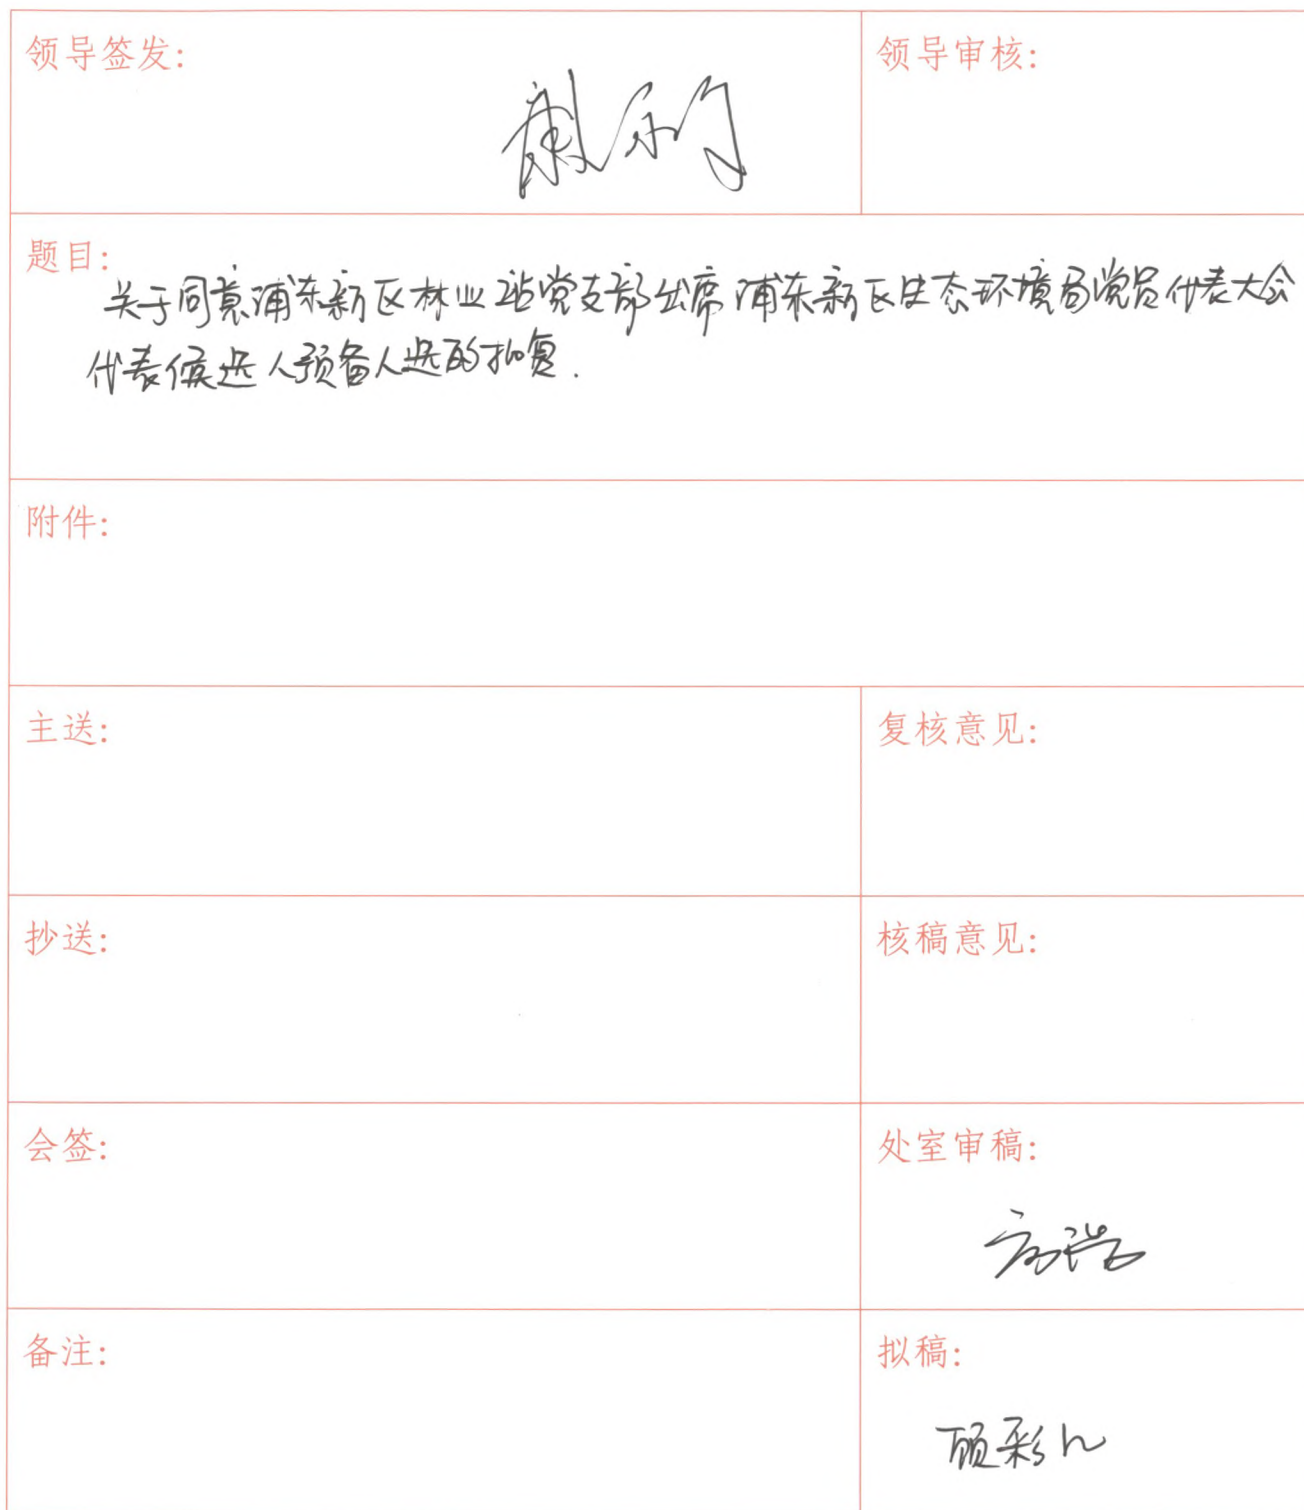 领导签发:
领导审核:
题目:
关于同意浦东新区林业站党支部出席浦东新区生态环境局党员代表大会
代表候选人预备人选的批复.
附件:
主送:
复核意见:
抄送:
核稿意见:
会签:
处室审稿:
备注:
拟稿:
顾彩